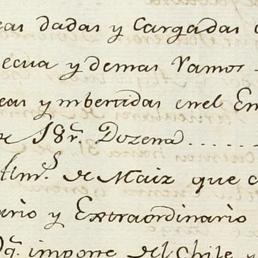 eas dadas y Cargadas
ecua y demas Ramos
eas y mbertidas en el En
18r. Dozena......
Alms. de Maiz que c
ario y Extraordinario
Dn. importe del Chile y